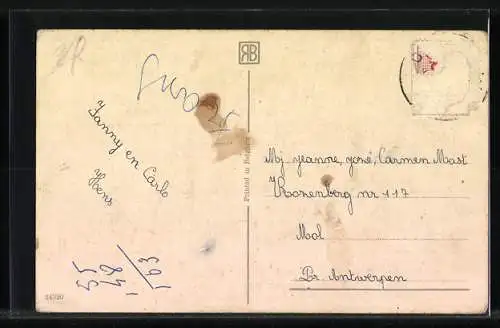 RB
Fanny en Carlo
Hens
55
48
163
Printed in Belgium
Mj Jeanne, José, Carmen Mast
Rozenberg nr 117
Mol
Pr. Antwerpen